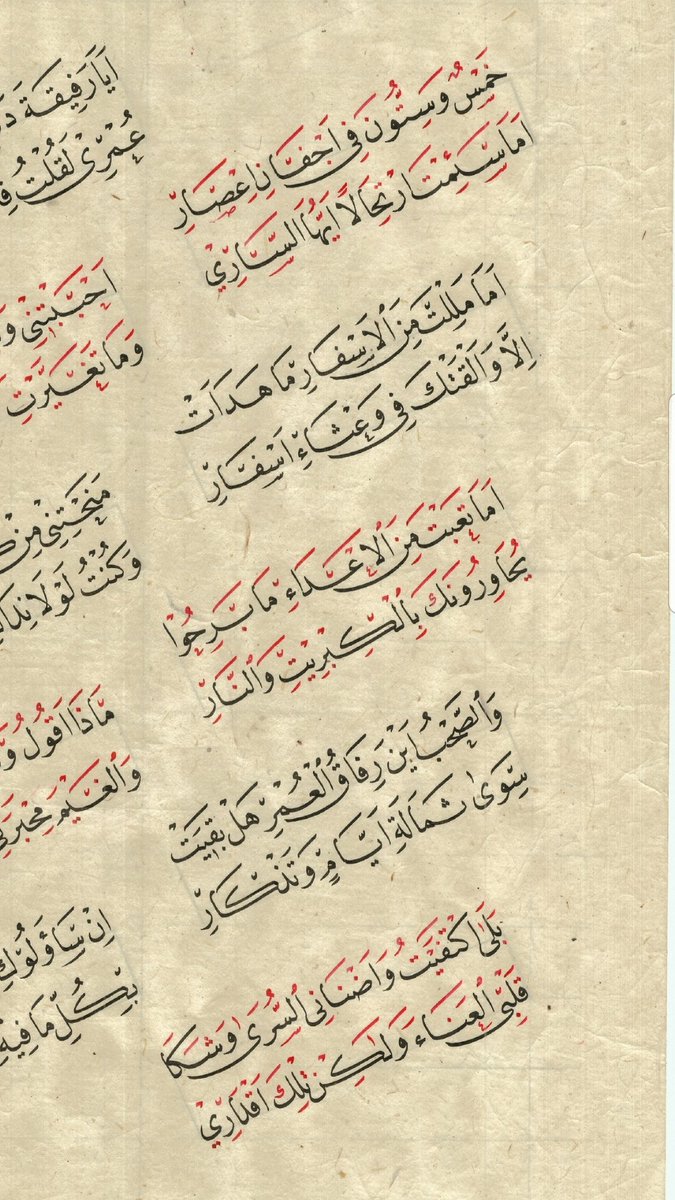 خَمْسٌ وَسِتُّونَ فِي اَجْفَانِ اِعْصَارِ
اَمَا سَئِمْتَ ارْتِحَالًا اَيُّهَا السَّارِيْ
اَمَا مَلِلْتَ مِنَ الْاَسْفَارِ مَا هَدَاَتْ
اِلَّا وَاَلْقَتْكَ فِي وَعْثَاءِ اَسْفَارِ
اَمَا تَعِبْتَ مِنَ الْاَعْدَاءِ مَا بَرِحُوْا
يُحَاوِرُونَكَ بِالْكِبْرِيْتِ وَالنَّارِ
وَالصَّحْبُ اَيْنَ رِفَاقُ الْعُمْرِ هَلْ بَقِيَتْ
سِوَى ثُمَالَةِ اَيَّامٍ وَتَذْكَارِ
بَلَى اكْتَفَيْتُ وَاَضْنَانِى السُّرَى وَشَكَا
قَلْبِى الْعَنَاءَ وَلَكِنْ تِلْكَ اَقْدَارِيْ
اَيَا رَفِيقَةَ
عُمْرِيْ لَقُلْتُ
اَحْبَبْتِنِيْ
وَمَا تَغَيَّرْتِ
مَنَحْتِنِيْ مِنْ
وَكُنْتُ لَوْلَا
مَاذَا اَقُولُ
وَالْغَيْمَ
اِنْ سَاؤَلُوْكِ
بِكُلِّ مَا فِيهِ